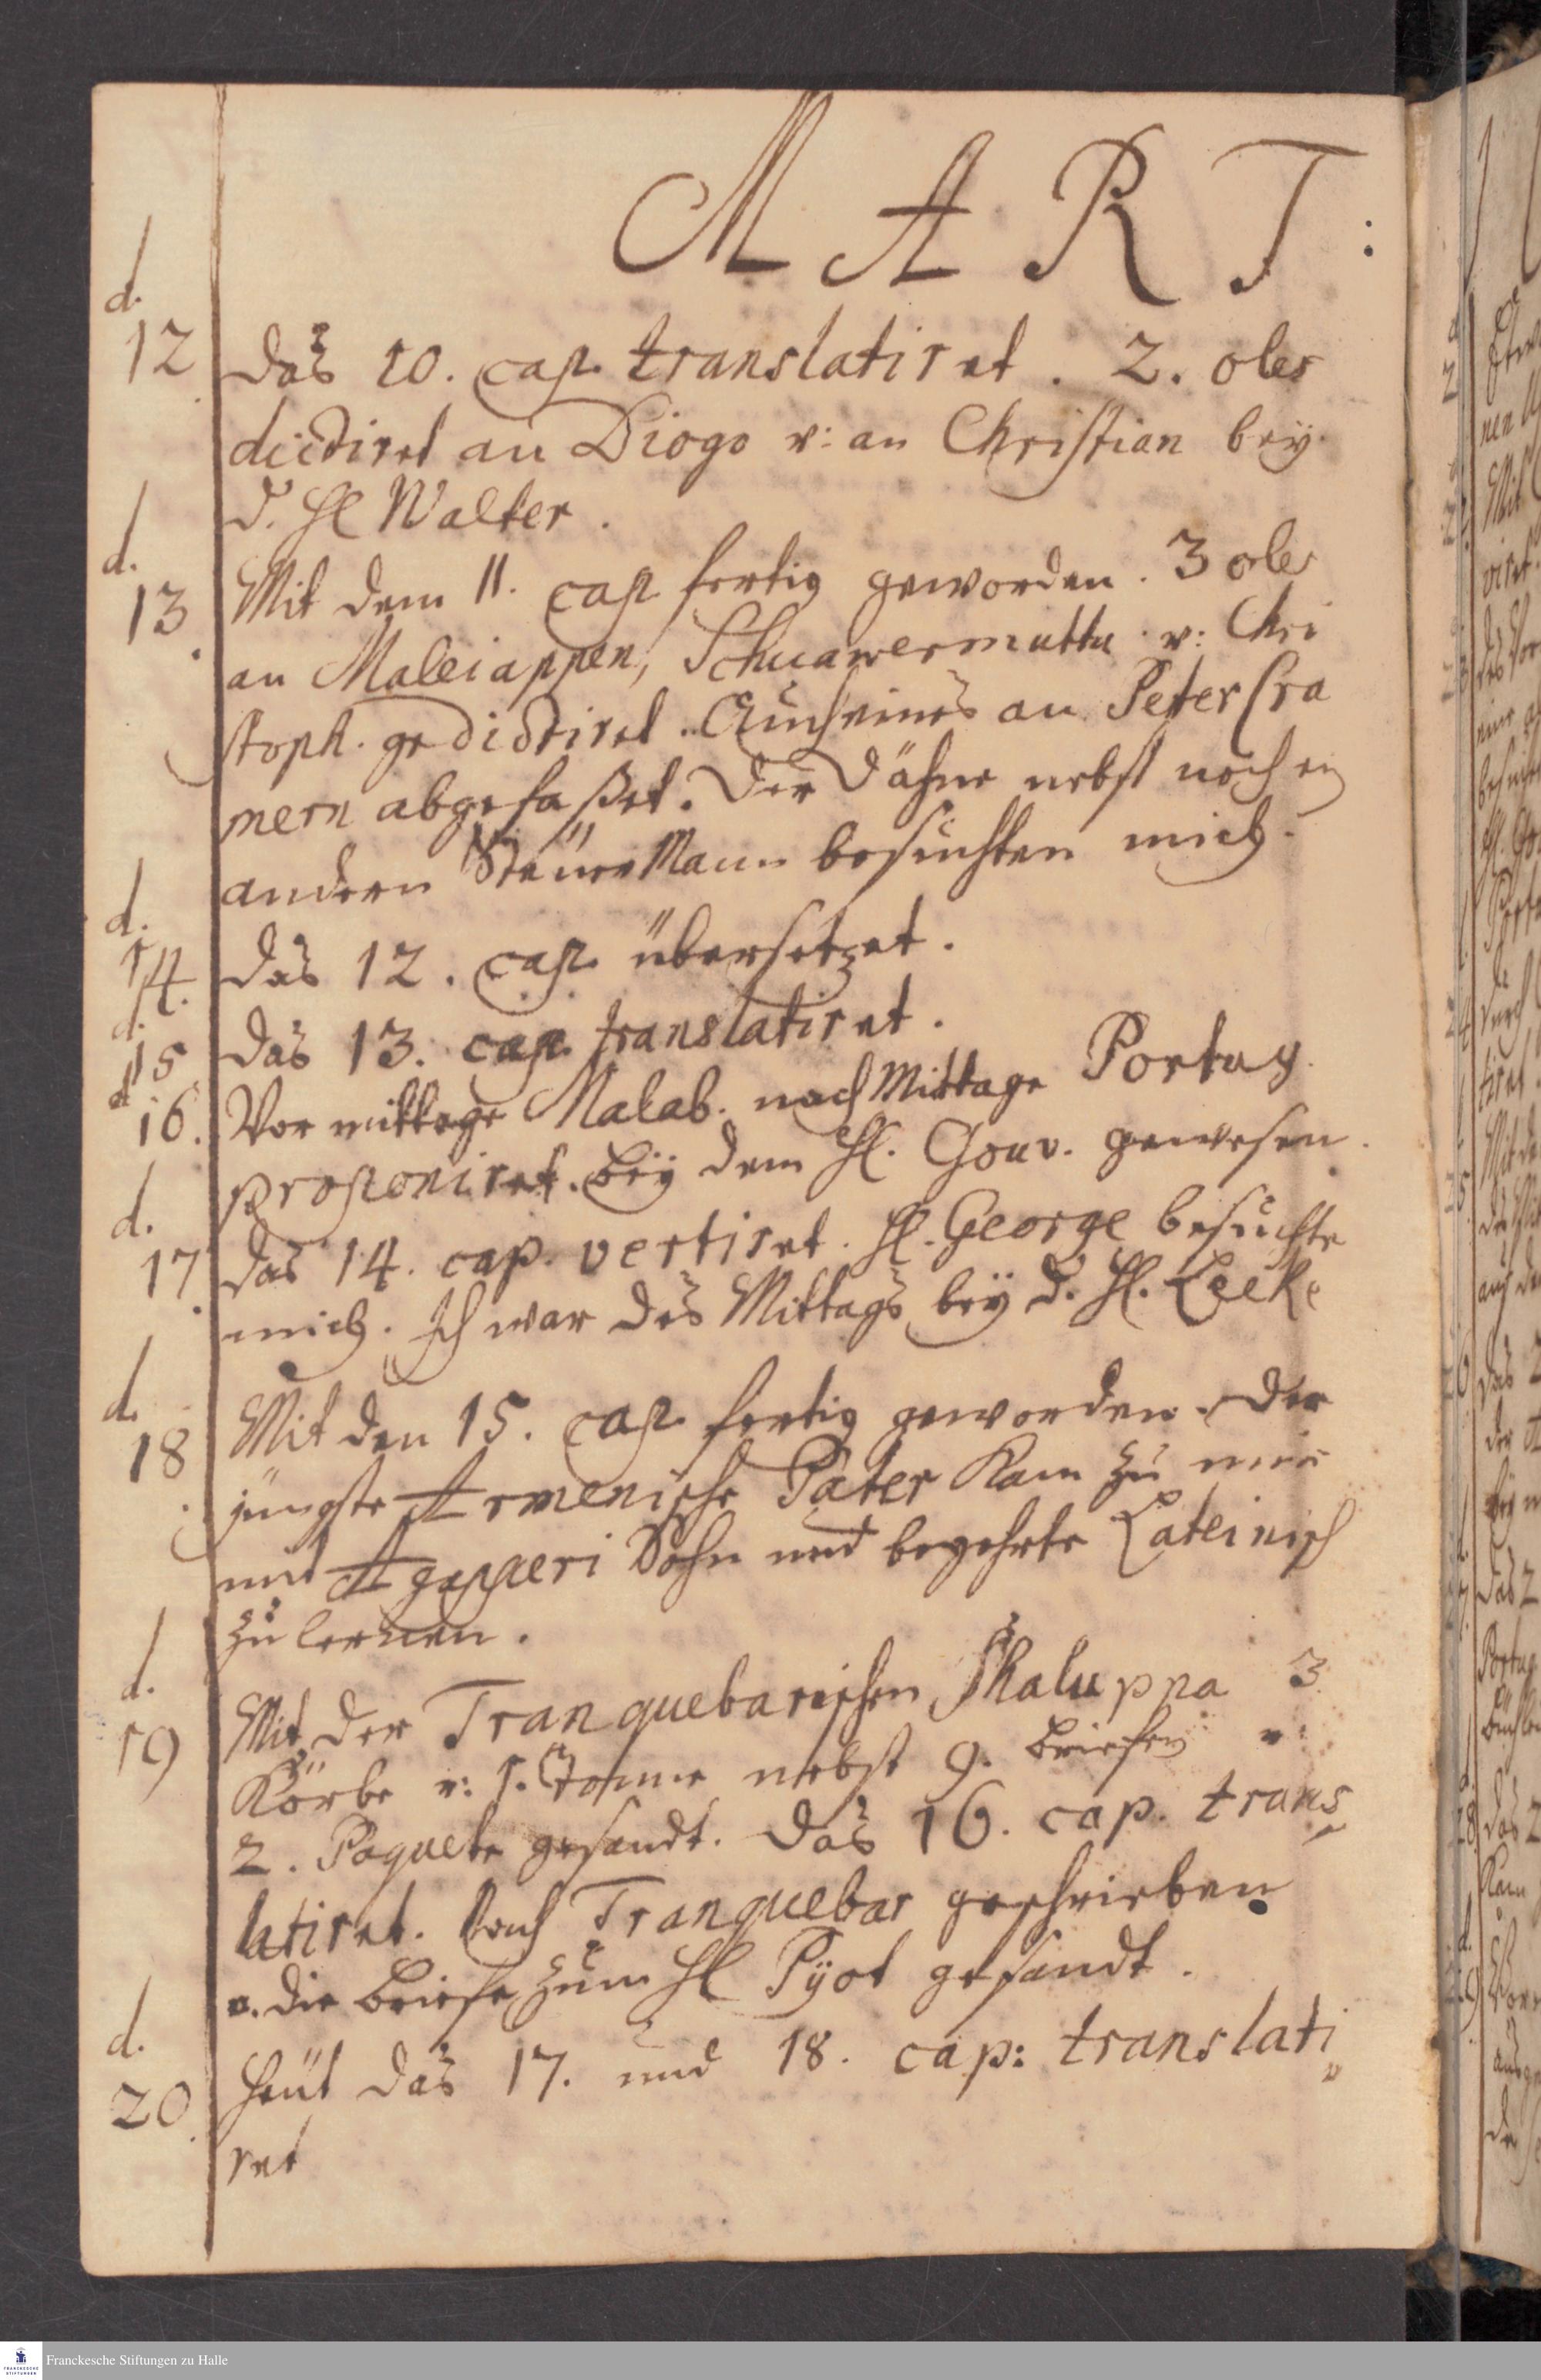 MART:
d. 12 Das 10. cap. translatiret. 2. oles
dictiret an Diogo u: an Christian bey
d. H Walter.
d. 13. Mit dem 11. cap fertig geworden. 3 oles
an Maleiappen, Schuawermuttu u: Chri
stoph. gedictiret. Auch eines an Peter Cra
mern abgefaßet. Der Dähne nebst noch en
andern SteüerMann besuchten mich.
d. 14. Das 12. cap. übersetzet.
d. 15 Das 13. cap. translatiret.
d 16. Vor mittage Malab. nach Mittage Portug.
proponiret. bey dem H. Gouv. gewesen.
d. 17. Das 14. cap. vertiret. H. George besuchte
mich. Ich war des Mittags bey d. H.
d. 18. Mit den 15. cap. fertig geworden. Der
jüngste Armenische Pater kam zu mir
mit Agapperi Sohn und begehrte Lateinisch
zu lernen.
d. 19 Mit der Tranquebarischen Shaluppa 3
Körbe u: 1. Tonne nebst 9. Briefen u:
2. Paquete gesandt. Das 16. cap. trans
latiret. Nach Tranquebar geschrieben
u. die Briefe zum H Pÿot gesandt.
d. 20. Heüt das 17. und 18. cap: translati
ret
Franckesche Stiftungen zu Halle